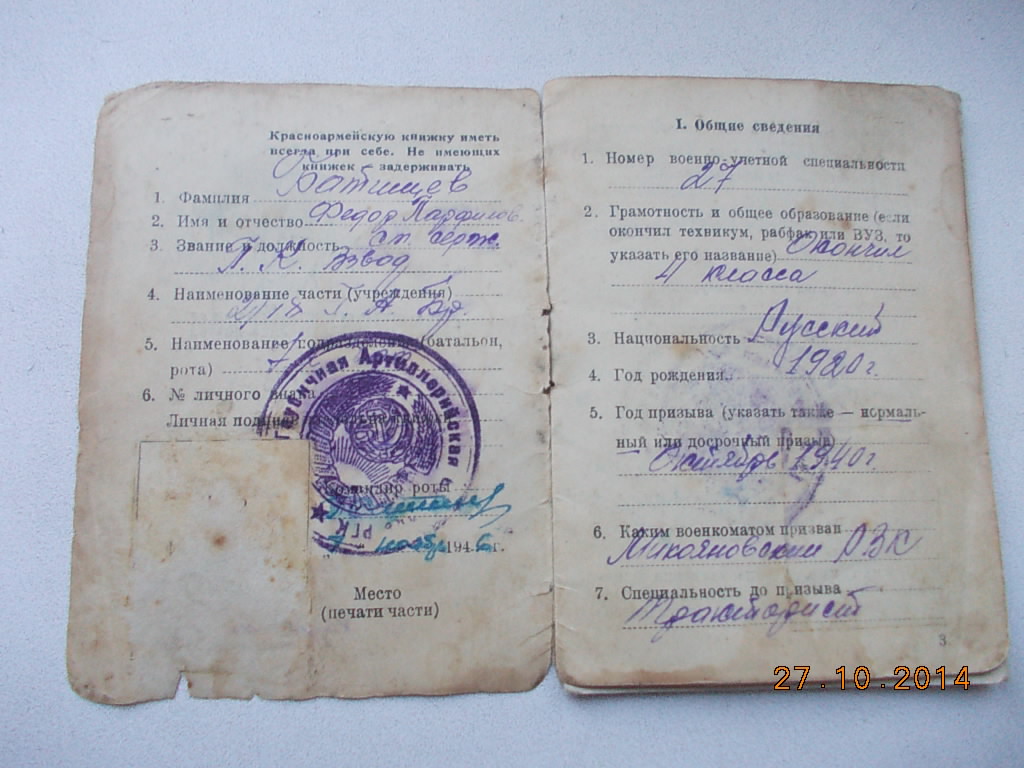 Красноармейскую книжку иметь
всегда при себе. Не имеющих
книжек — задерживать
1. Фамилия Батищев
2. Имя и отчество Федор Парфилов.
3. Звание и должность ст. серж.
П. К. Взвод
4. Наименование части (учреждения)
Г. А. Бр.
5. Наименование подразделения (батальон,
рота)
6. № личного знака
Личная подпись
Гаубичная Артиллерийская
РГК
Командир роты
7 ноябр 1946 г.
Место
(печати части)
I. Общие сведения
1. Номер военно-учетной специальности
27
2. Грамотность и общее образование (если
окончил техникум, рабфак или ВУЗ, то
указать его название) Окончил
4 класса
3. Национальность Русский
4. Год рождения 1920 г.
5. Год призыва (указать также — нормаль-
ный или досрочный призыв)
Октябрь 1940 г.
6. Каким военкоматом призван
Микояновский РВК
7. Специальность до призыва
Тракторист
3
27.10.2014